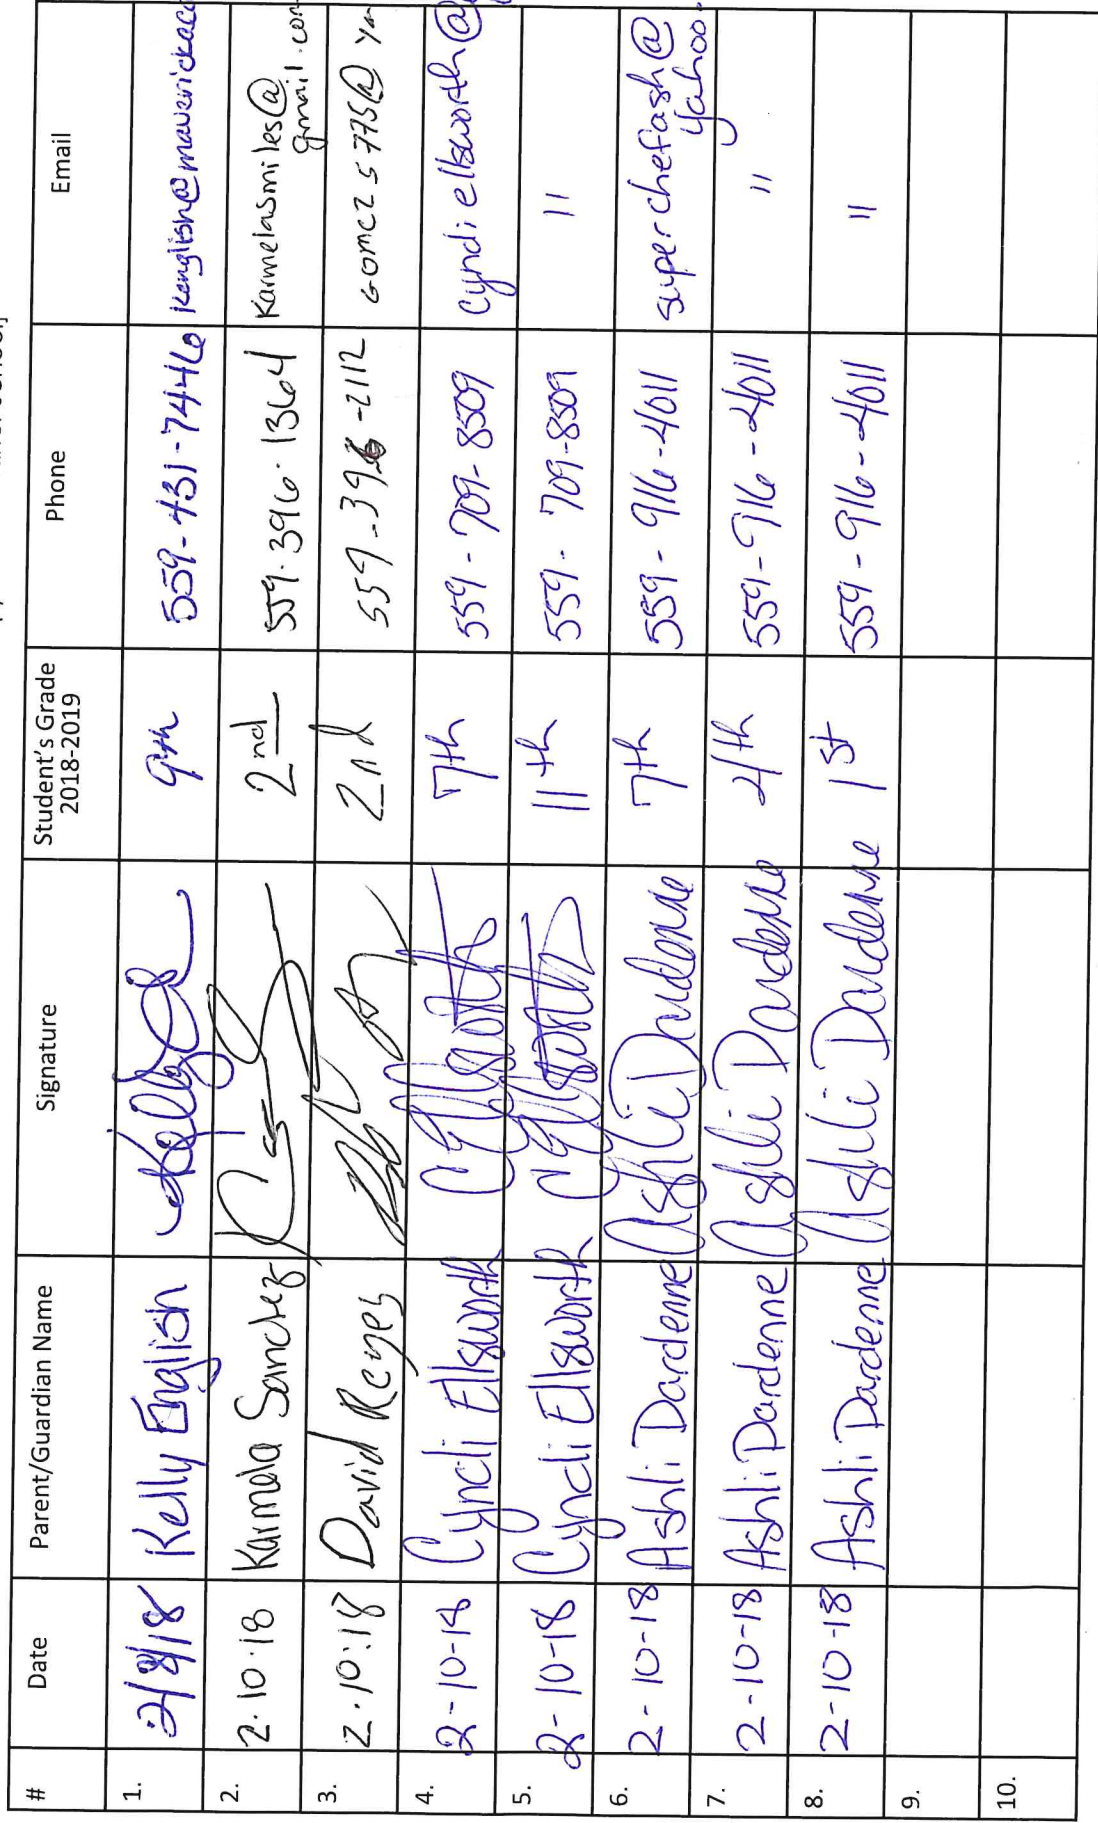 # Date Parent/Guardian Name Signature Student's Grade 2018-2019 Phone Email
1. 2/8/18 Kelly English 9th 559-431-7446 kenglish@maverickaca
2. 2.10.18 Karmela Sanchez 2nd 559.396.1364 Karmelasmiles@gmail.com
3. 2.10.18 David Reyes 2nd 559-396-2112 Gomez5775@ya
4. 2-10-18 Cyndi Ellsworth CEllsworth 7th 559-709-8509 cyndiellsworth@
5. 2-10-18 Cyndi Ellsworth CEllsworth 11th 559-709-8509 "
6. 2-10-18 Ashli Dardenne Ashli Dardenne 7th 559-916-4011 superchefash@yahoo.
7. 2-10-18 Ashli Dardenne Ashli Dardenne 4th 559-916-4011 "
8. 2-10-18 Ashli Dardenne Ashli Dardenne 1st 559-916-4011 "
9.
10.